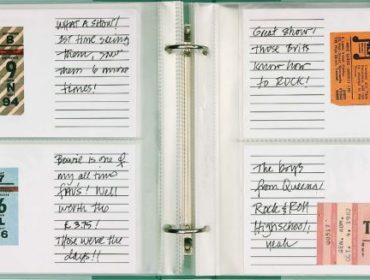 WHAT A SHOW!
1st time seeing
them, saw
them 6 more
times!
9
N 94
Great Show!
Those Brits
Know how
to ROCK!
Bowie is one of
my all time
FAVS! Well
worth the
£ 3.75!
Those were the
days!!
6
The boys
from Queens!
Rock & Roll
Highschool,
yeah